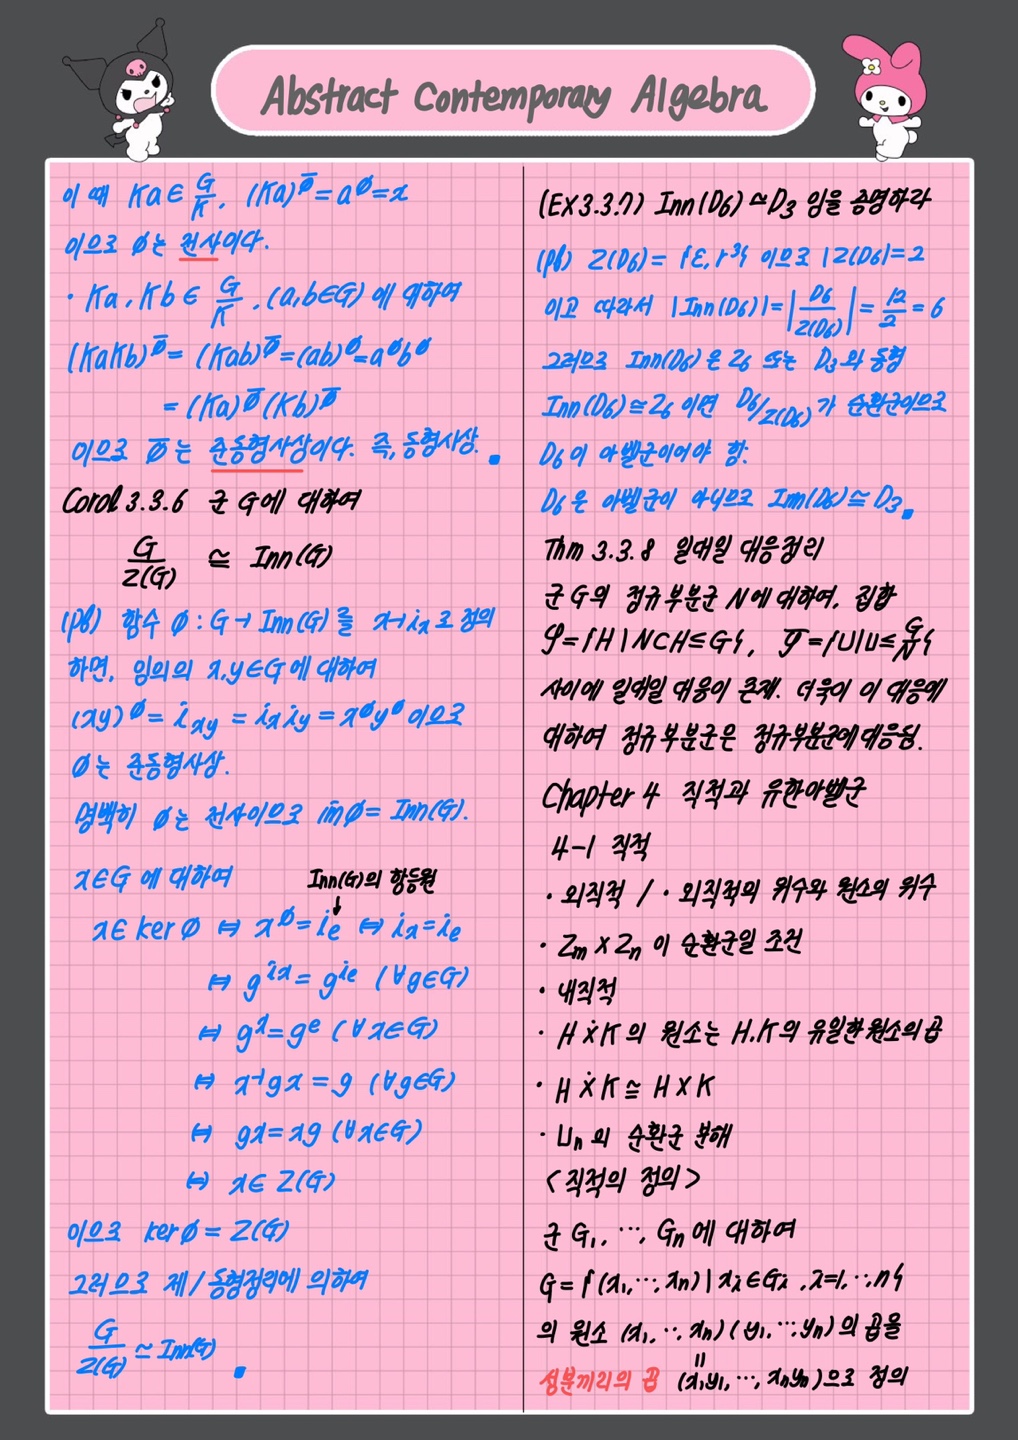 Abstract Contemporary Algebra
이 때 Ka ∈ G/K, (Ka)^φ̄ = a^φ = x
이므로 φ는 전사이다.
· Ka, Kb ∈ G/K, (a,b∈G) 에 대하여
(KaKb)^φ̄ = (Kab)^φ̄ = (ab)^φ = a^φ b^φ
= (Ka)^φ̄ (Kb)^φ̄
이므로 φ̄는 준동형사상이다. 즉, 동형사상.
Corol 3.3.6 군 G에 대하여
G/Z(G) ≅ Inn(G)
(pf) 함수 φ : G → Inn(G) 를 x→i_x로 정의
하면, 임의의 x,y∈G에 대하여
(xy)^φ = i_xy = i_x i_y = x^φ y^φ 이므로
φ는 준동형사상.
명백히 φ는 전사이므로 im φ = Inn(G).
x∈G 에 대하여
Inn(G)의 항등원
↓
x∈ ker φ ⇔ x^φ = i_e ⇔ i_x = i_e
⇔ g^{i_x} = g^{i_e} (∀g∈G)
⇔ g^x = g^e (∀x∈G)
⇔ x⁻¹gx = g (∀g∈G)
⇔ gx = xg (∀x∈G)
⇔ x∈ Z(G)
이므로 ker φ = Z(G)
그러므로 제1동형정리에 의하여
G/Z(G) ≃ Inn(G)
(EX 3.3.7) Inn(D₆) ≃ D₃ 임을 증명하라
(pf) Z(D₆) = {ε, r³} 이므로 |Z(D₆)| = 2
이고 따라서 |Inn(D₆)| = |D₆/Z(D₆)| = 12/2 = 6
그러므로 Inn(D₆)은 Z₆ 또는 D₃와 동형
Inn(D₆) ≅ Z₆ 이면 D₆/Z(D₆)가 순환군이므로
D₆이 아벨군이어야 함.
D₆은 아벨군이 아니므로 Inn(D₆) ≅ D₃
Thm 3.3.8 일대일 대응정리
군 G의 정규부분군 N에 대하여, 집합
𝒮 = {H | N⊂H≤G}, 𝒮̄ = {U | U≤ G/N}
사이에 일대일 대응이 존재. 더욱이 이 대응에
대하여 정규부분군은 정규부분군에 대응됨.
Chapter 4 직적과 유한아벨군
4-1 직적
· 외직적 / · 외직적의 위수와 원소의 위수
· Zm × Zn 이 순환군일 조건
· 내직적
· H ẋ K의 원소는 H,K의 유일한 원소의 곱
· H ẋ K ≅ H × K
· Un의 순환군 분해
<직적의 정의>
군 G₁, ⋯, Gn에 대하여
G = {(x₁, ⋯, xn) | xi ∈ Gi, i=1, ⋯, n}
의 원소 (x₁, ⋯, xn) (y₁, ⋯, yn)의 곱을
=
성분끼리의 곱 (x₁y₁, ⋯, xnyn)으로 정의